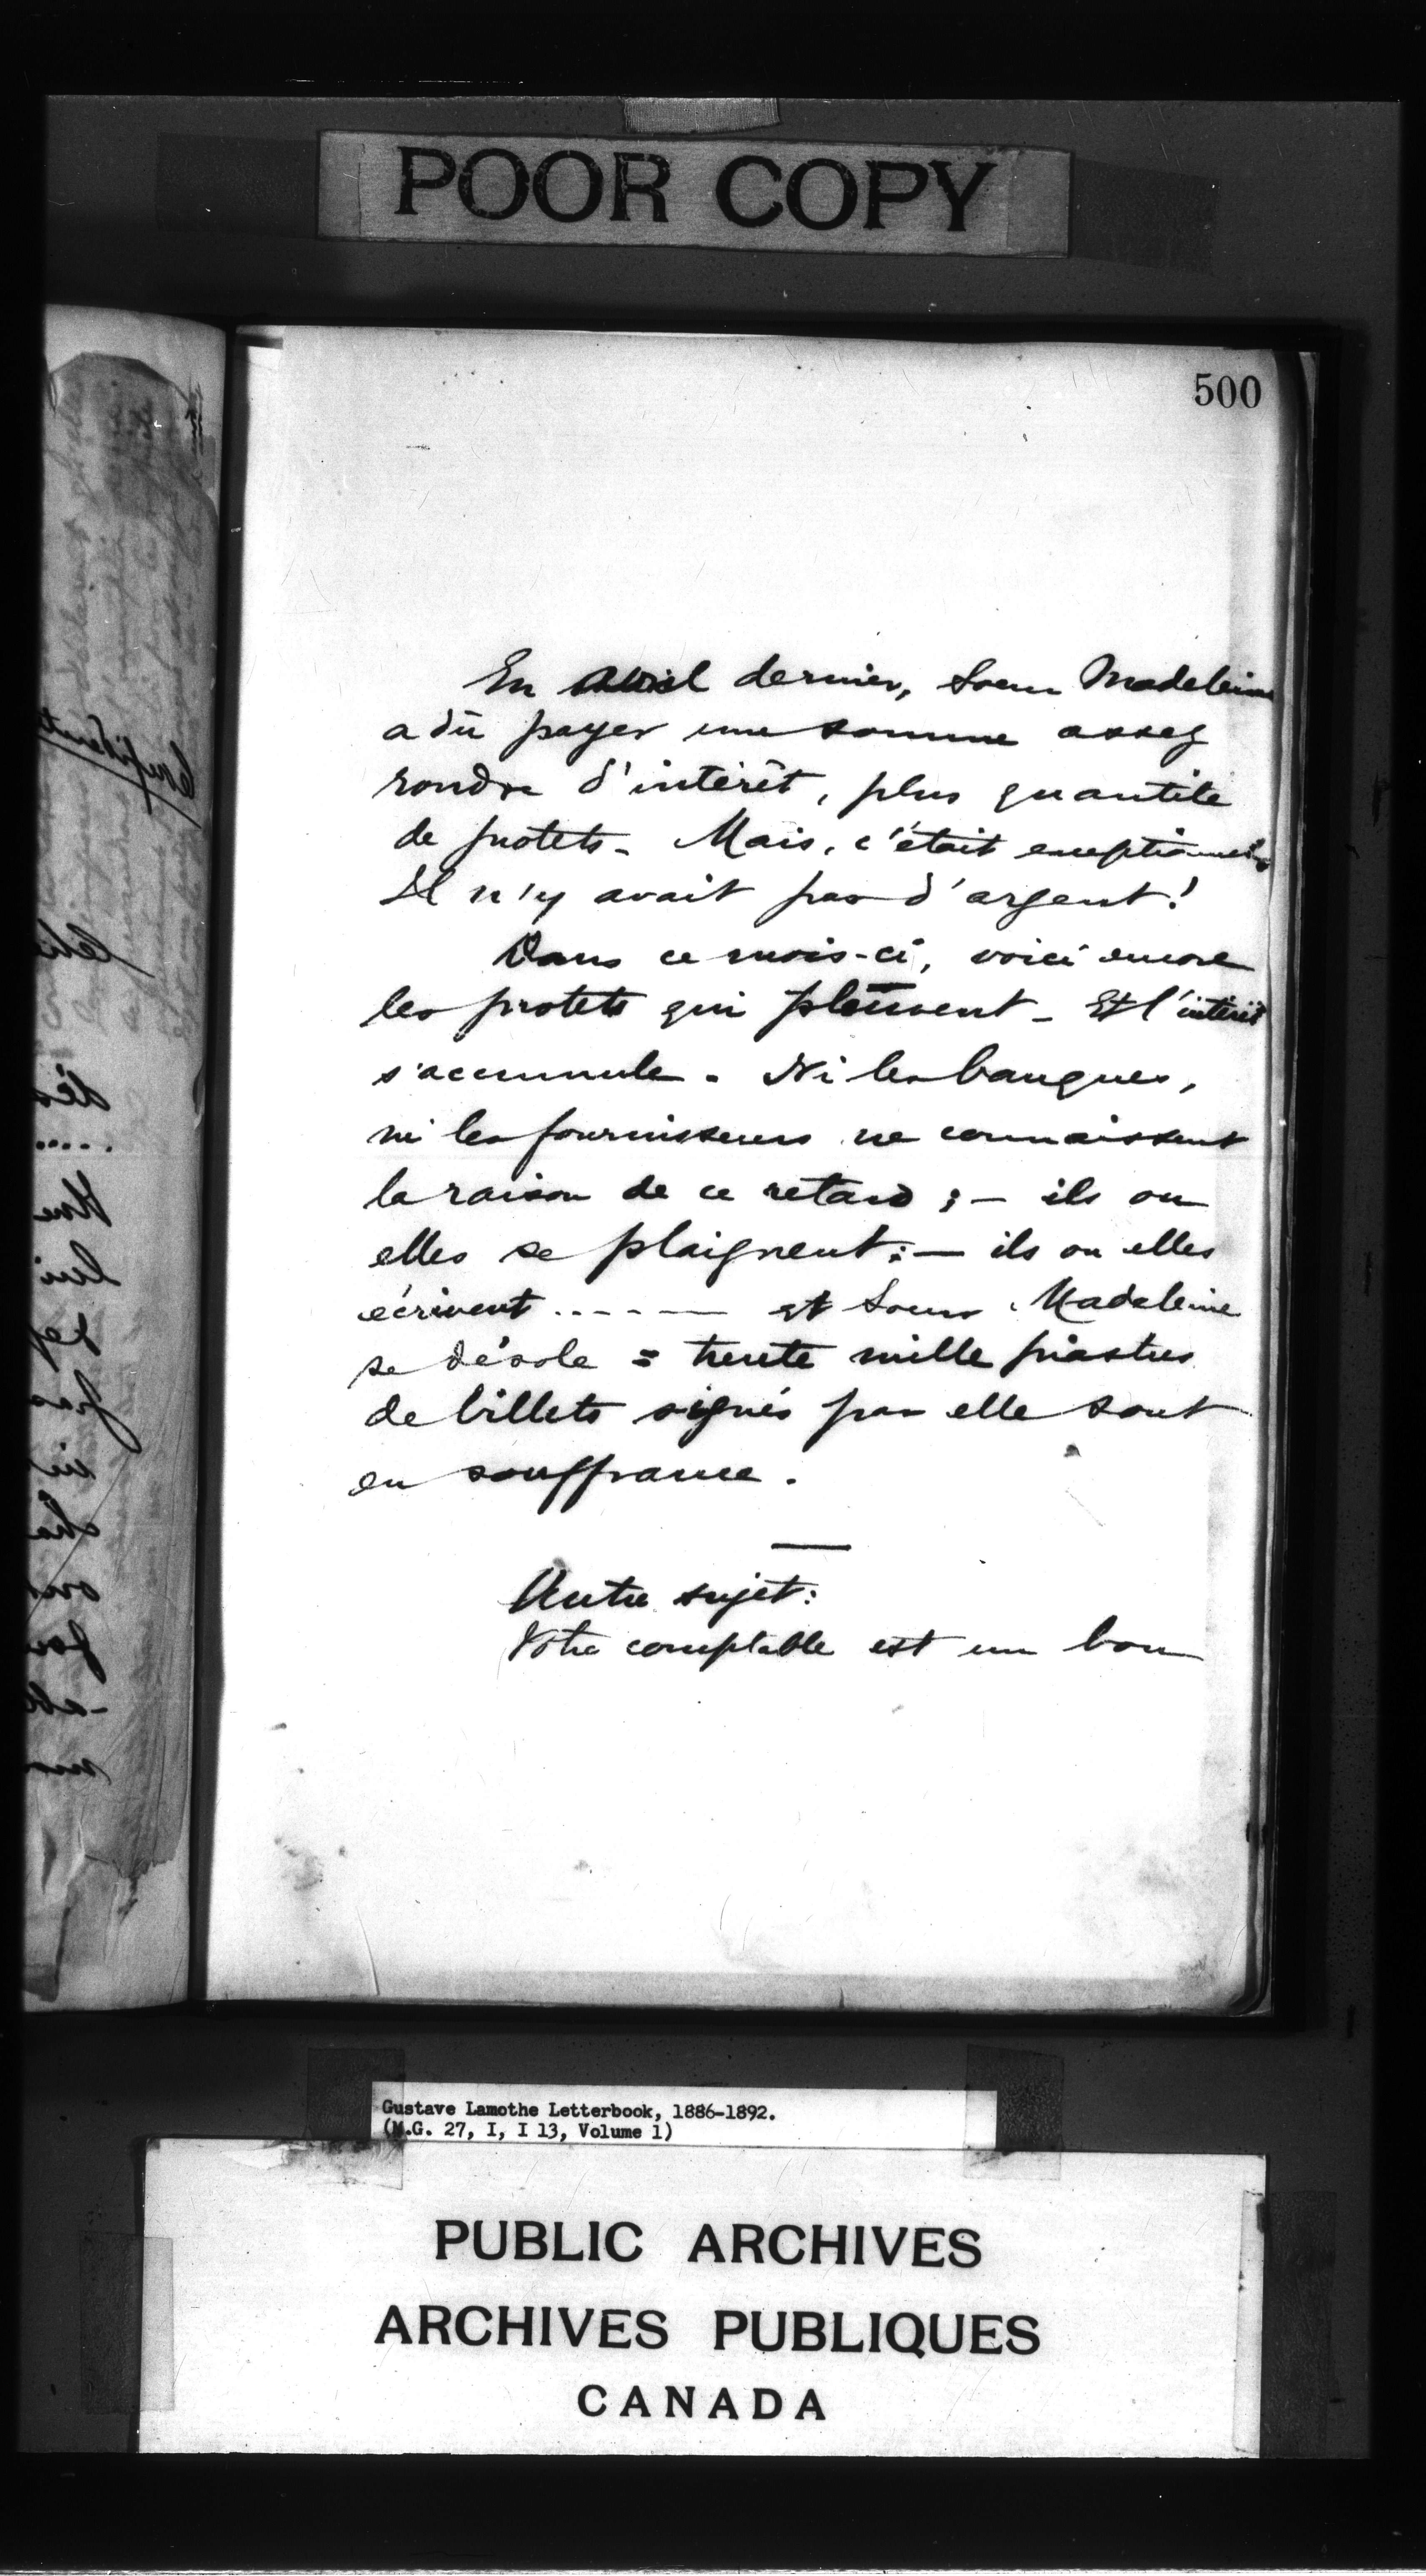 POOR COPY
500
En avril dernier, Soeur Madeleine
a dû payer une somme assez
ronde d'intérêt, plus quantité
de protets - Mais, c'était exceptionnel
Il n'y avait pas d'argent!
Dans ce mois-ci, voici encore
les protets qui pleuvent - Et l'intérêt
s'accumule. Ni les banques,
ni les fournisseurs ne connaissent
la raison de ce retard ; - ils ou
elles se plaignent ; - ils ou elles
écrivent ..... — et Soeur Madeleine
se désole = trente mille piastres
de billets signés par elle sont
en souffrance.
Autre sujet:
Votre comptable est un bon
Gustave Lamothe Letterbook, 1886-1892.
(M.G. 27, I, I 13, Volume 1)
PUBLIC ARCHIVES
ARCHIVES PUBLIQUES
CANADA